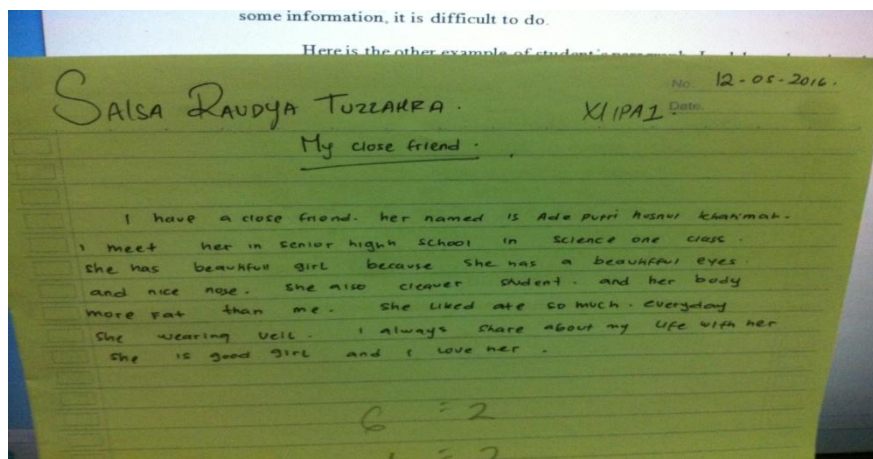 some information, it is difficult to do.
Here is the other example of student's paragraph.
No. 12-05-2016.
SALSA RAUDYA TUZZAHRA. XI IPA 1 Date.
My close friend.
I have a close friend. her named is Ade putri hosnul khatimah.
I meet her in senior highh school in science one class.
she has beautifull girl because she has a beautifful eyes.
and nice nose. she also cleaver student. and her body
more fat than me. she liked ate so much. everyday
she wearing veil. I always share about my life with her
she is good girl and I love her.
6 = 2
= 2